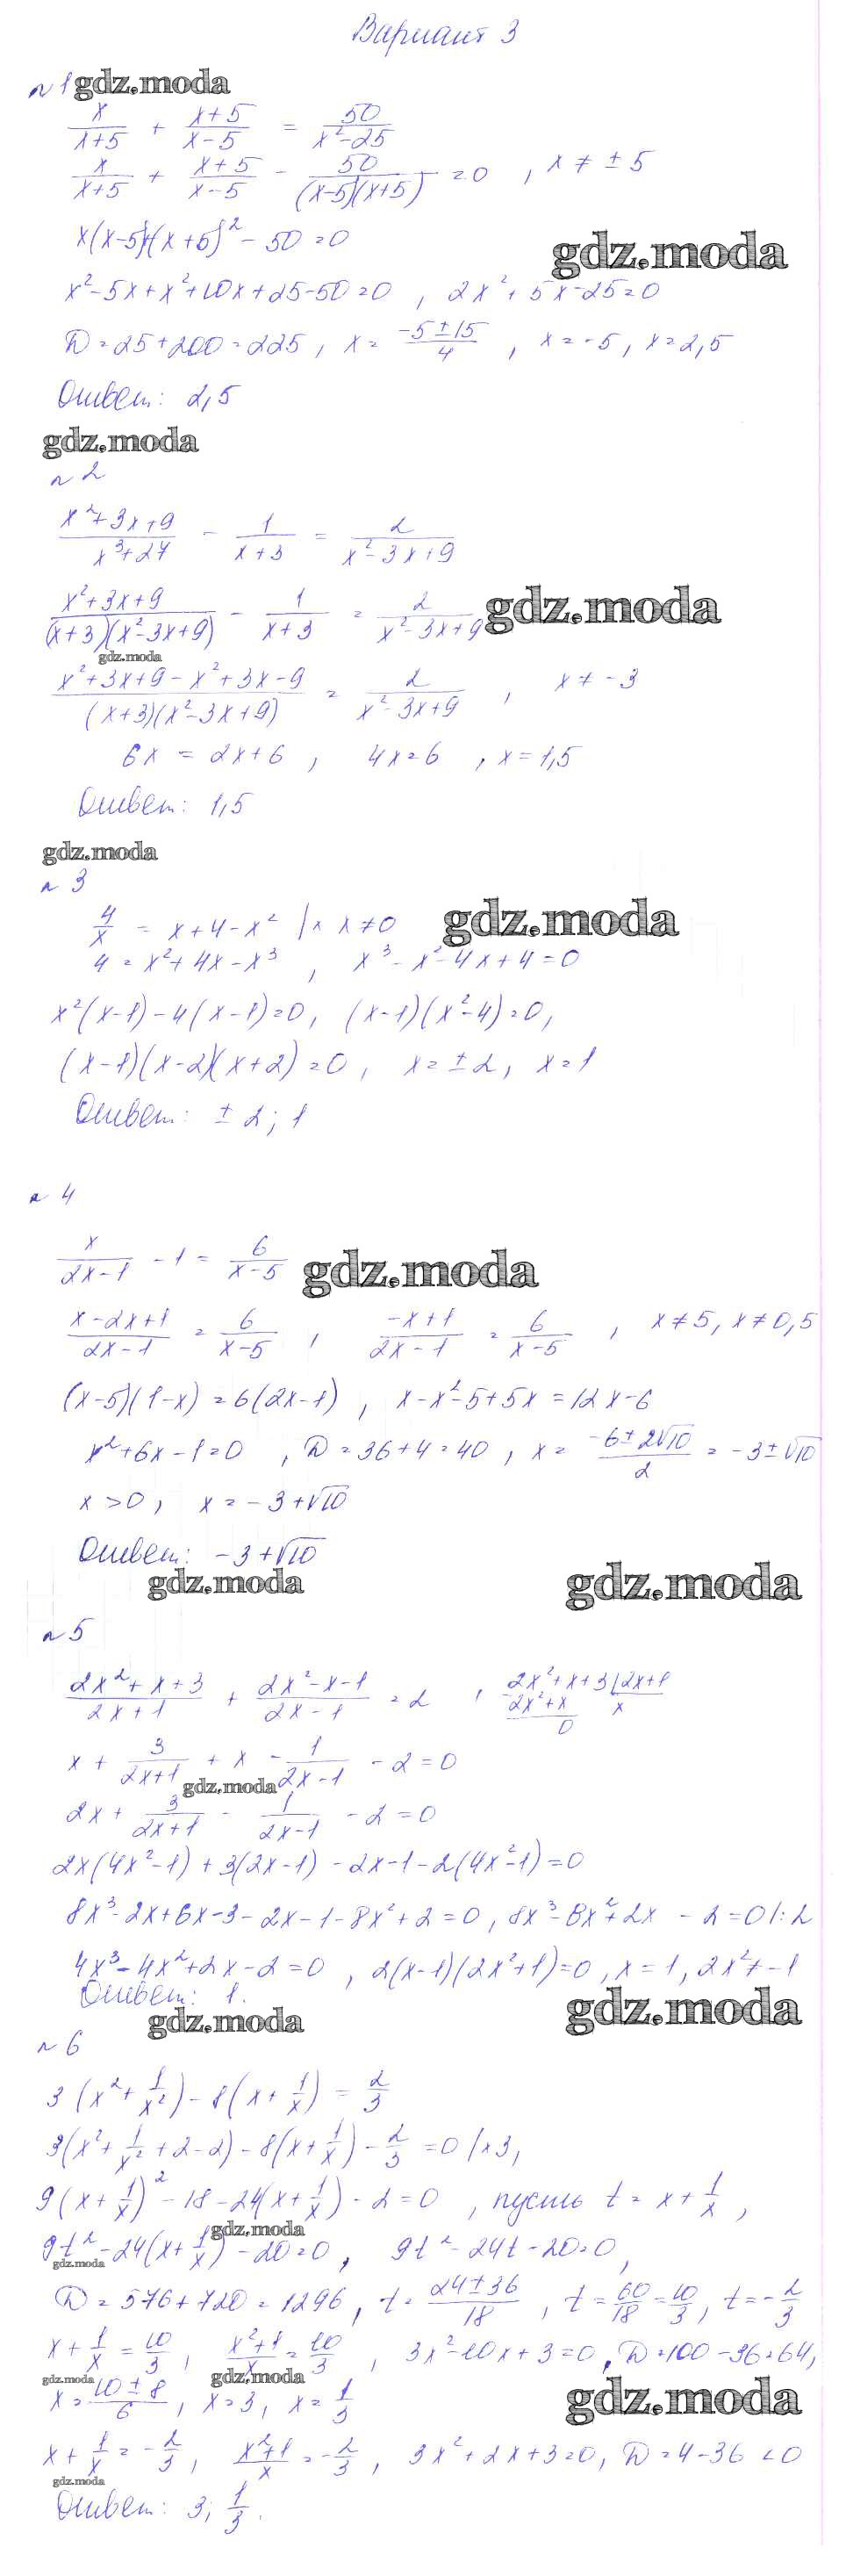 Вариант 3
№1 gdz.moda
x/(x+5) + (x+5)/(x-5) = 50/(x²-25)
x/(x+5) + (x+5)/(x-5) - 50/((x-5)(x+5)) = 0 , x ≠ ±5
x(x-5)+(x+5)² - 50 = 0
gdz.moda
x²-5x+x²+10x+25-50=0 , 2x²+5x-25=0
D=25+200=225, x= (-5±15)/4 , x=-5, x=2,5
Ответ: 2,5
gdz.moda
№2
(x²+3x+9)/(x³+27) - 1/(x+3) = 2/(x²-3x+9)
(x²+3x+9)/((x+3)(x²-3x+9)) - 1/(x+3) = 2/(x²-3x+9) gdz.moda
gdz.moda
(x²+3x+9-x²+3x-9)/((x+3)(x²-3x+9)) = 2/(x²-3x+9) , x ≠ -3
6x = 2x+6 , 4x=6 , x=1,5
Ответ: 1,5
gdz.moda
№3
4/x = x+4-x² |×x x≠0 gdz.moda
4 = x²+4x-x³ , x³-x²-4x+4=0
x²(x-1)-4(x-1)=0, (x-1)(x²-4)=0,
(x-1)(x-2)(x+2)=0, x=±2, x=1
Ответ: ±2; 1
№4
x/(2x-1) - 1 = 6/(x-5) gdz.moda
(x-2x+1)/(2x-1) = 6/(x-5) , (-x+1)/(2x-1) = 6/(x-5) , x≠5, x≠0,5
(x-5)(1-x)=6(2x-1), x-x²-5+5x=12x-6
x²+6x-1=0 , D=36+4=40, x= (-6±2√10)/2 = -3±√10
x>0, x=-3+√10
Ответ: -3+√10
gdz.moda gdz.moda
№5
(2x²+x+3)/(2x+1) + (2x²-x-1)/(2x-1) = 2 , 2x²+x+3 |2x+1
2x²+x x
0
x + 3/(2x+1) + x - 1/(2x-1) - 2=0
gdz.moda
2x + 3/(2x+1) - 1/(2x-1) - 2 = 0
2x(4x²-1)+3(2x-1)-2x-1-2(4x²-1)=0
8x³-2x+6x-3-2x-1-8x²+2=0, 8x³-8x²+2x - 2=0 |:2
4x³-4x²+2x-2=0 , 2(x-1)(2x²+1)=0, x=1, 2x²≠-1
Ответ: 1.
gdz.moda gdz.moda
№6
3(x²+1/x²)-8(x+1/x) = 2/3
3(x²+1/x²+2-2)-8(x+1/x)-2/3=0 |×3,
9(x+1/x)²-18-24(x+1/x)-2=0 , пусть t=x+1/x ,
gdz.moda
9t²-24(x+1/x)-20=0, 9t²-24t-20=0,
gdz.moda
D=576+720=1296, t= (24±36)/18 , t=60/18=10/3, t=-2/3
x+1/x=10/3, (x²+1)/x=10/3 , 3x²-10x+3=0, D=100-36=64,
gdz.moda gdz.moda gdz.moda
x=(10±8)/6, x=3, x=1/3
x+1/x=-2/3, (x²+1)/x=-2/3, 3x²+2x+3=0, D=4-36<0
gdz.moda
Ответ: 3; 1/3.